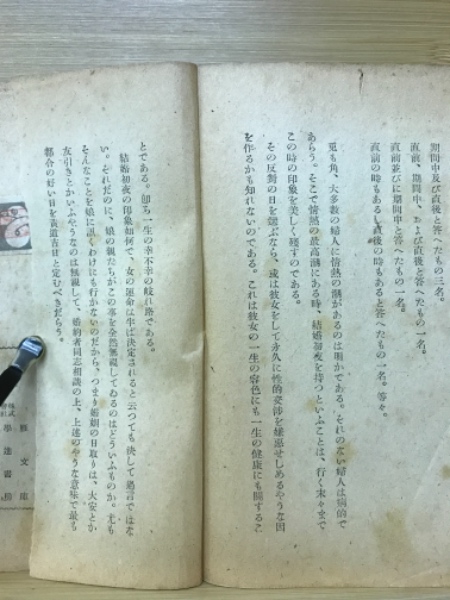 期間中及び直後と答へたもの三名。
直前、期間中、および直後と答へたもの一名。
直前並びに期間中と答へたもの一名。
直前の時もあるし直後の時もあると答へたもの一名。等々。
兎も角、大多数の婦人に情熱の潮があるのは明かである。それのない婦人は病的で
あらう。そこで情熱の最高潮にある時、結婚初夜を持つといふことは、行く末々まで
この時の印象を美しく残すのである。
その反対の日を選ぶなら、或は彼女をして永久に性的交渉を嫌悪せしめるやうな因
を作るかも知れないのである。これは彼女の一生の容色にも一生の健康にも関するこ
とである。即ち一生の幸不幸の岐れ路である。
結婚初夜の印象如何で、女の運命は半ば決定されると云つても決して過言ではな
い。それだのに、娘の親たちがこの事を全然無視してゐるのはどういふものか。尤も
そんなことを娘に訊くわけにも行かないのだから、つまり婚姻の日取りは、大安とか
友引きとかいふやうなのは無視して、婚約者同志相談の上、上述のやうな意味で最も
都合の好い日を黄道吉日と定むべきだらう。